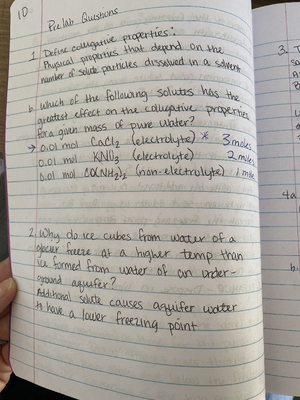 10.
Pre lab Questions
1. Define colligative properties:
Physical properties that depend on the
number of solute particles dissolved in a solvent
b. Which of the following solutes has the
greatest effect on the colligative properties
for a given mass of pure water?
→ 0.01 mol CaCl2 (electrolyte) * 3 moles
0.01 mol KNO3 (electrolyte) 2 moles
0.01 mol CO(NH2)2 (non-electrolyte) 1 mole
2. Why do ice cubes from water of a
glacier freeze at a higher temp than
ice formed from water of an under-
ground aquifer?
Additional solute causes aquifer water
to have a lower freezing point
3.
4a.
b.